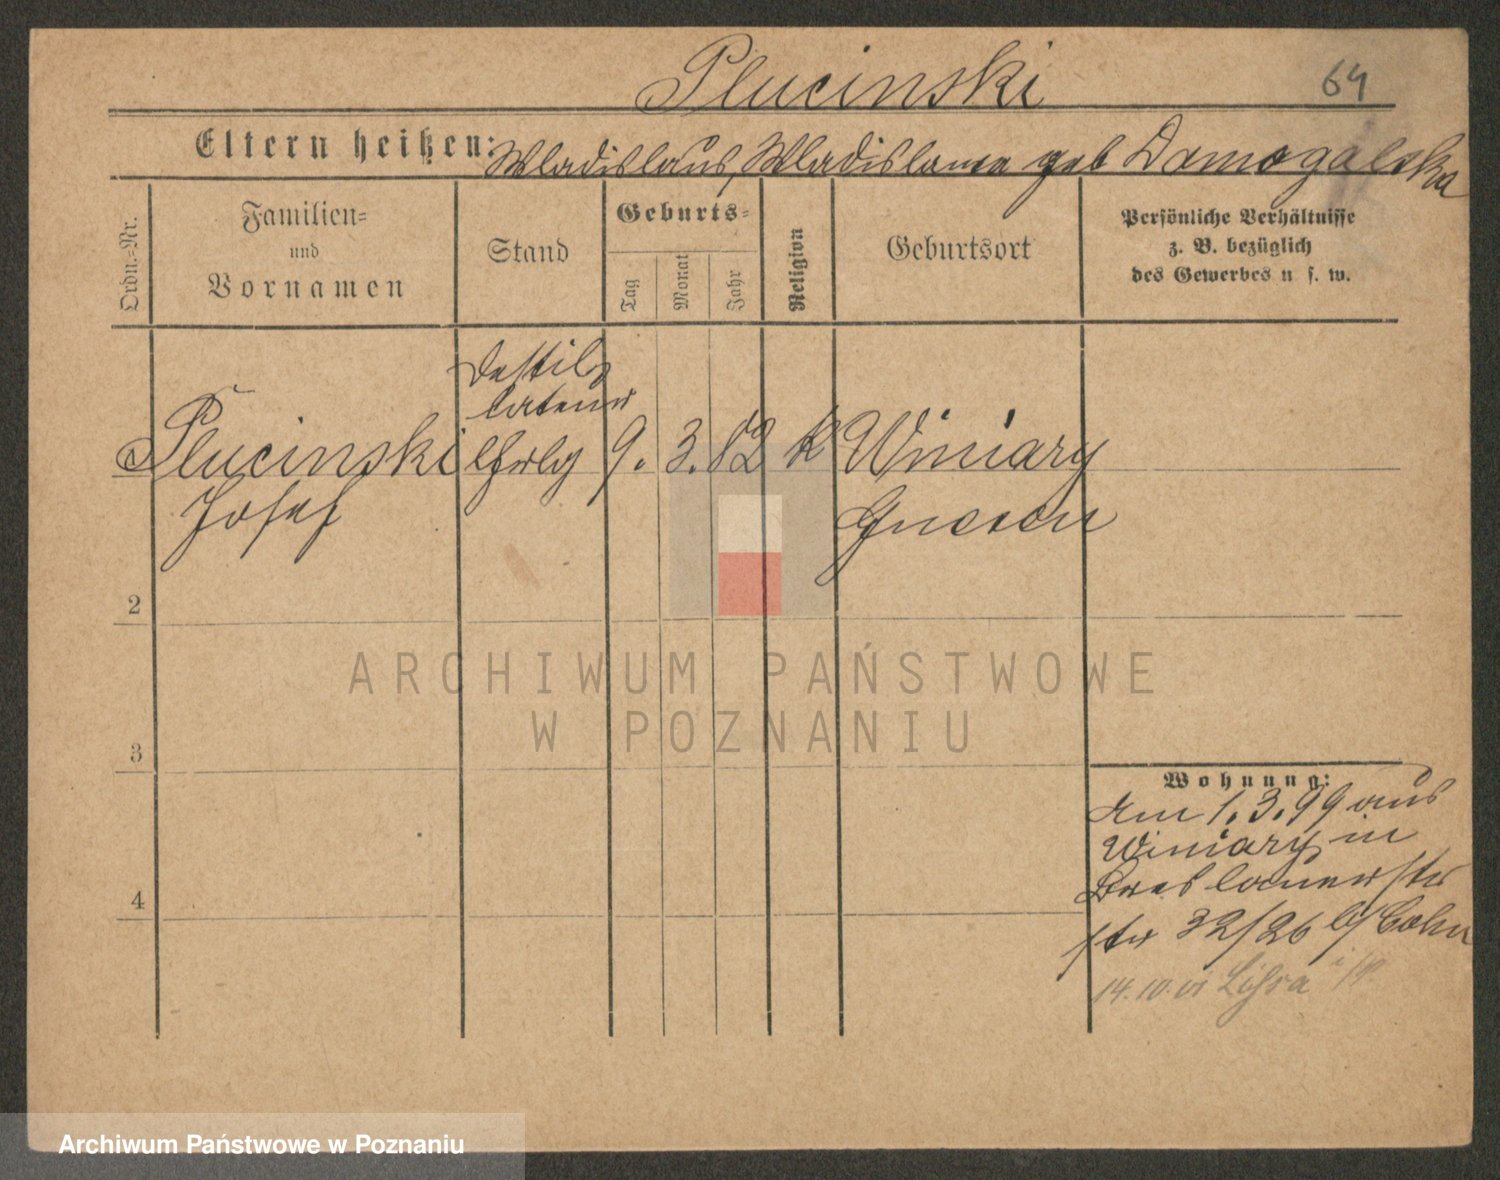 Plucinski
64
Eltern heißen: Wladislaus, Wladislawa geb Domogalska
Ordn.-Nr.
Familien-
und
Vornamen
Stand
Geburts-
Tag
Monat
Jahr
Religion
Geburtsort
Persönliche Verhältnisse
z. B. bezüglich
des Gewerbes u s. w.
Destil
lateur
Plucinski
Josef
9. 3. 82
k
Winiary
Gnesen
2
3
4
ARCHIWUM PAŃSTWOWE
W POZNANIU
Wohnung:
Am 1.3.99 aus
Winiary in
Breslauerstr
str 32/26 b/ Cohn
14.10.
Archiwum Państwowe w Poznaniu